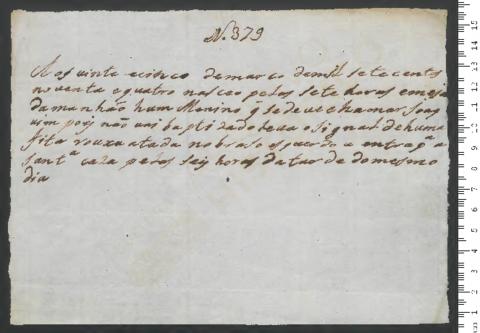 N. 379
Aos vinte ecinco demarco demil setecentos
noventa e quatro nasceo pelas sete horas emeja
damanhão hum Menino q̃ sedeve chamar Joas
uim pois não vai baptizado leva o signal dehuma
fita rouxa atada nobraso esquerdo e entrega a
Sant.ª caza pelas seis horas da tarde domesmo
dia